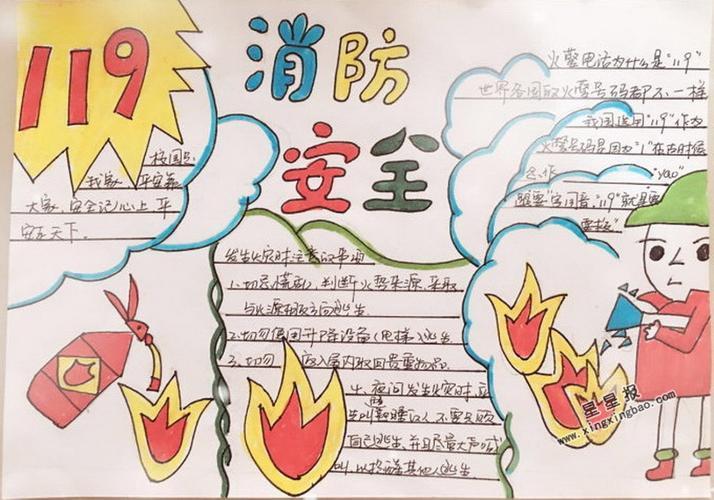 119
消防
安全
校园是
我家 平安靠
大家,安全记心上 平
安走天下。
火警电话为什么是"119"
世界各国的火警号码都不一样
我国选用"119"作为
火警号码是因为"1"在古时候
念作"yao"
跟"要"字同音,"119"就是要
要救
发生火灾时注意的事项
1.切忌慌乱,判断火势来源,采取
与火源相反方向逃生
2.切勿使用升降设备(电梯)逃生
3.切勿 返入屋内取回贵重物品
4.夜间发生火灾时,应
先叫 熟睡的人,不要只顾
自己逃生,并且尽量大声喊
叫,以提醒其他人逃生
星星报
www.xingxingbao.com